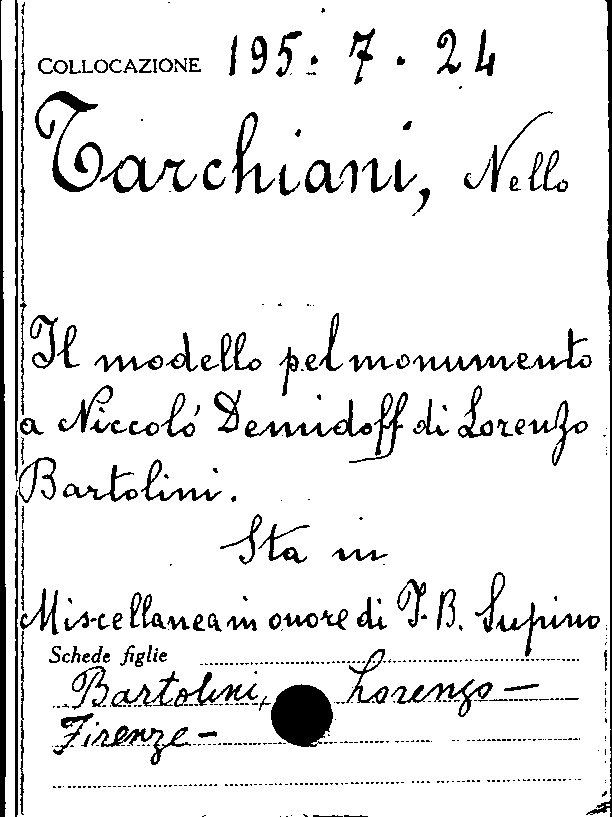 COLLOCAZIONE 195. 7. 24
Tarchiani, Nello
Il modello pel monumento
a Niccoló Demidoff di Lorenzo
Bartolini.
Sta in
Miscellanea in onore di I. B. Supino
Schede figlie
Bartolini, Lorenzo —
Firenze —